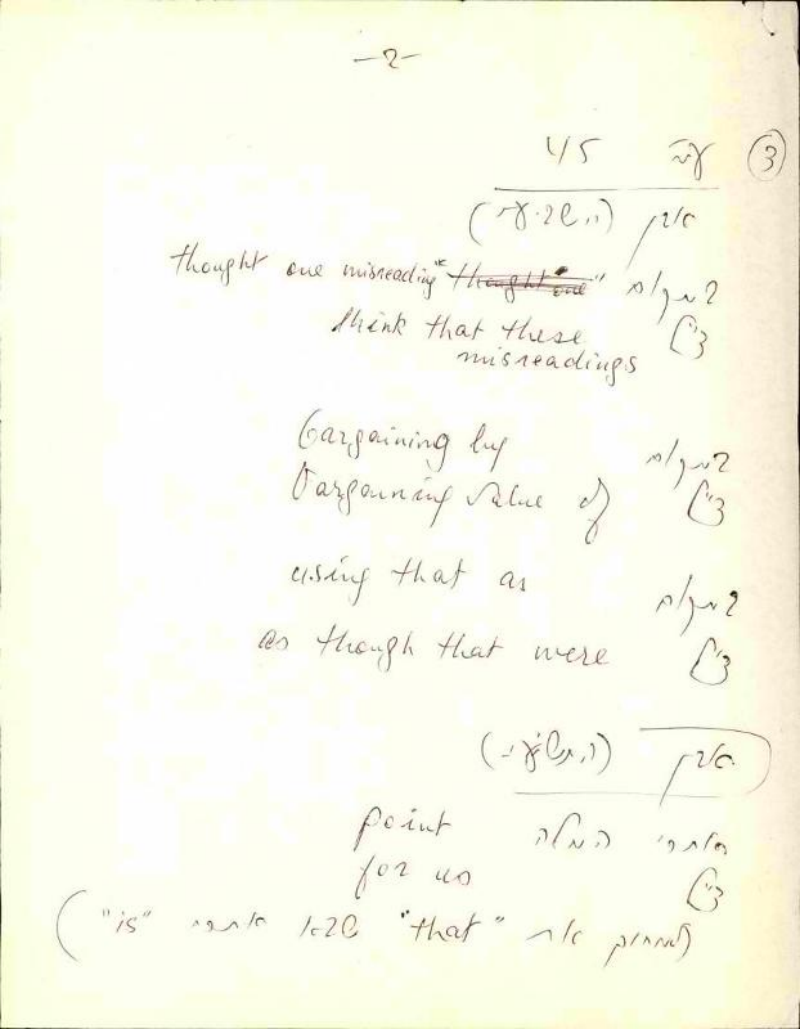 -2-
③ עמ'
אבן (השביעי)
במקום thought one misreading
צ"ל think that these
misreadings
במקום bargaining by
צ"ל bargaining value of
במקום using that as
צ"ל as though that were
אבן (התשיעי)
אחרי המלה point
צ"ל for us
(למחוק את "that" שבא אחרי "is"